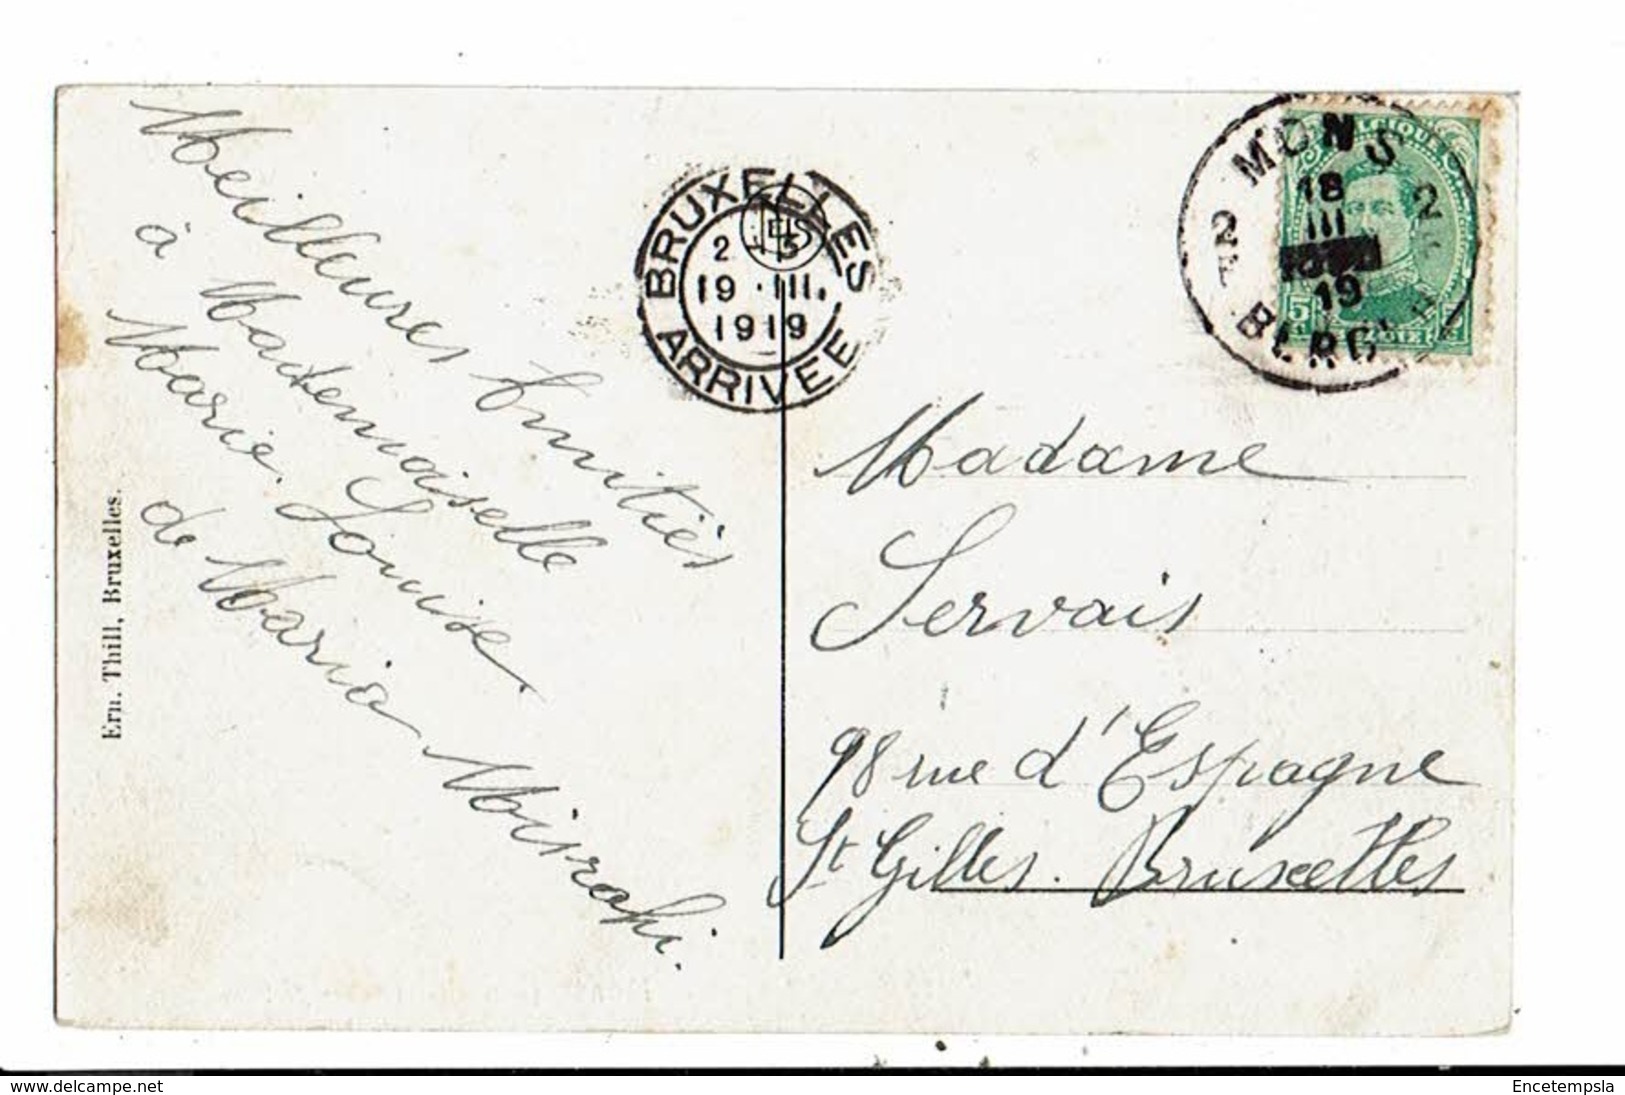 Meilleures Amitiés
à Mademoiselle
Marie. Louise.
de Maria Misrahi.
Ern. Thill, Bruxelles.
BRUXELLES
19 · III.
1919
ARRIVEE
MONS
18
III
19
2
2
BELGIQUE
5
Madame
Servais
98 rue d'Espagne
St Gilles. Bruxelles
www.delcampe.net
Encetempsla